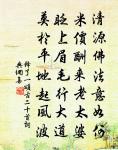 清源佛法意如何
米價酬來老太婆
眨上眉毛行大道
莫於平地起風波
釋了一頌古二十首詞
典網集